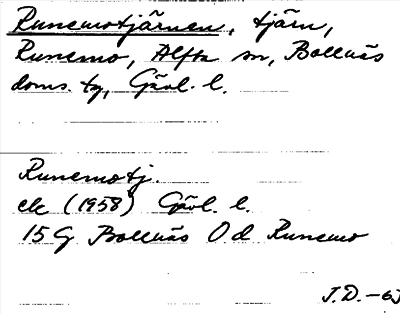 Runemotjärnen, tjärn,
Runemo, Alfta sn, Bollnäs
doms. tg, Gävl. l.
Runemotj.
ek (1958) Gävl. l.
15 G Bollnäs O d Runemo
J.D. -63